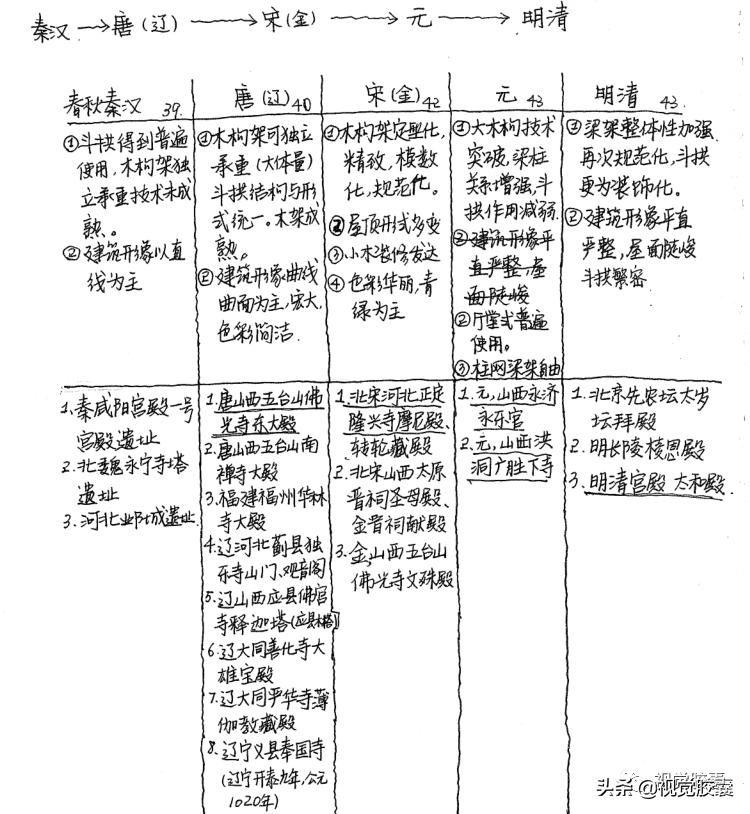 秦汉→唐(辽)→宋(金)→元→明清
春秋秦汉 39.
①斗拱得到普遍
使用,木构架独
立承重技术未成
熟。
②建筑形象以直
线为主
1.秦咸阳宫殿一号
宫殿遗址
2.北魏永宁寺塔
遗址
3.河北邺城遗址
唐(辽)40
①木构架可独立
承重(大体量)
斗拱结构与形
式统一。木架成
熟。
②建筑形象曲线
曲面为主,宏大,
色彩简洁.
1.唐山西五台山佛
光寺东大殿
2.唐山西五台山南
禅寺大殿
3.福建福州华林
寺大殿
4.辽河北蓟县独
乐寺山门、观音阁
5.辽山西应县佛宫
寺释迦塔(应县木塔)
6.辽大同善化寺大
雄宝殿
7.辽大同华寺薄
伽教藏殿
8.辽宁义县奉国寺
(辽宁开泰九年,公元
1020年)
宋(金)42
①木构架定型化,
精致,模数
化,规范化。
②屋顶形式多变
③小木装修发达
④色彩华丽,青
绿为主
1.北宋河北正定
隆兴寺摩尼殿、
转轮藏殿
2.北宋山西太原
晋祠圣母殿、
金晋祠献殿
3.金,山西五台山
佛光寺文殊殿
元 43
①大木构技术
突破,梁柱
关系增强,斗
拱作用减弱.
②建筑形象平
直严整,屋
面陡峻
②厅堂式普遍
使用。
③柱网梁架自由
1.元,山西永济
永乐宫
2.元,山西洪
洞广胜下寺
明清 43.
①梁架整体性加强.
再次规范化,斗拱
更为装饰化。
②建筑形象平直
严整,屋面陡峻
斗拱繁密.
1.北京先农坛太岁
坛拜殿
2.明长陵棱恩殿
3.明清宫殿 太和殿.
视觉胶囊
头条@视觉胶囊